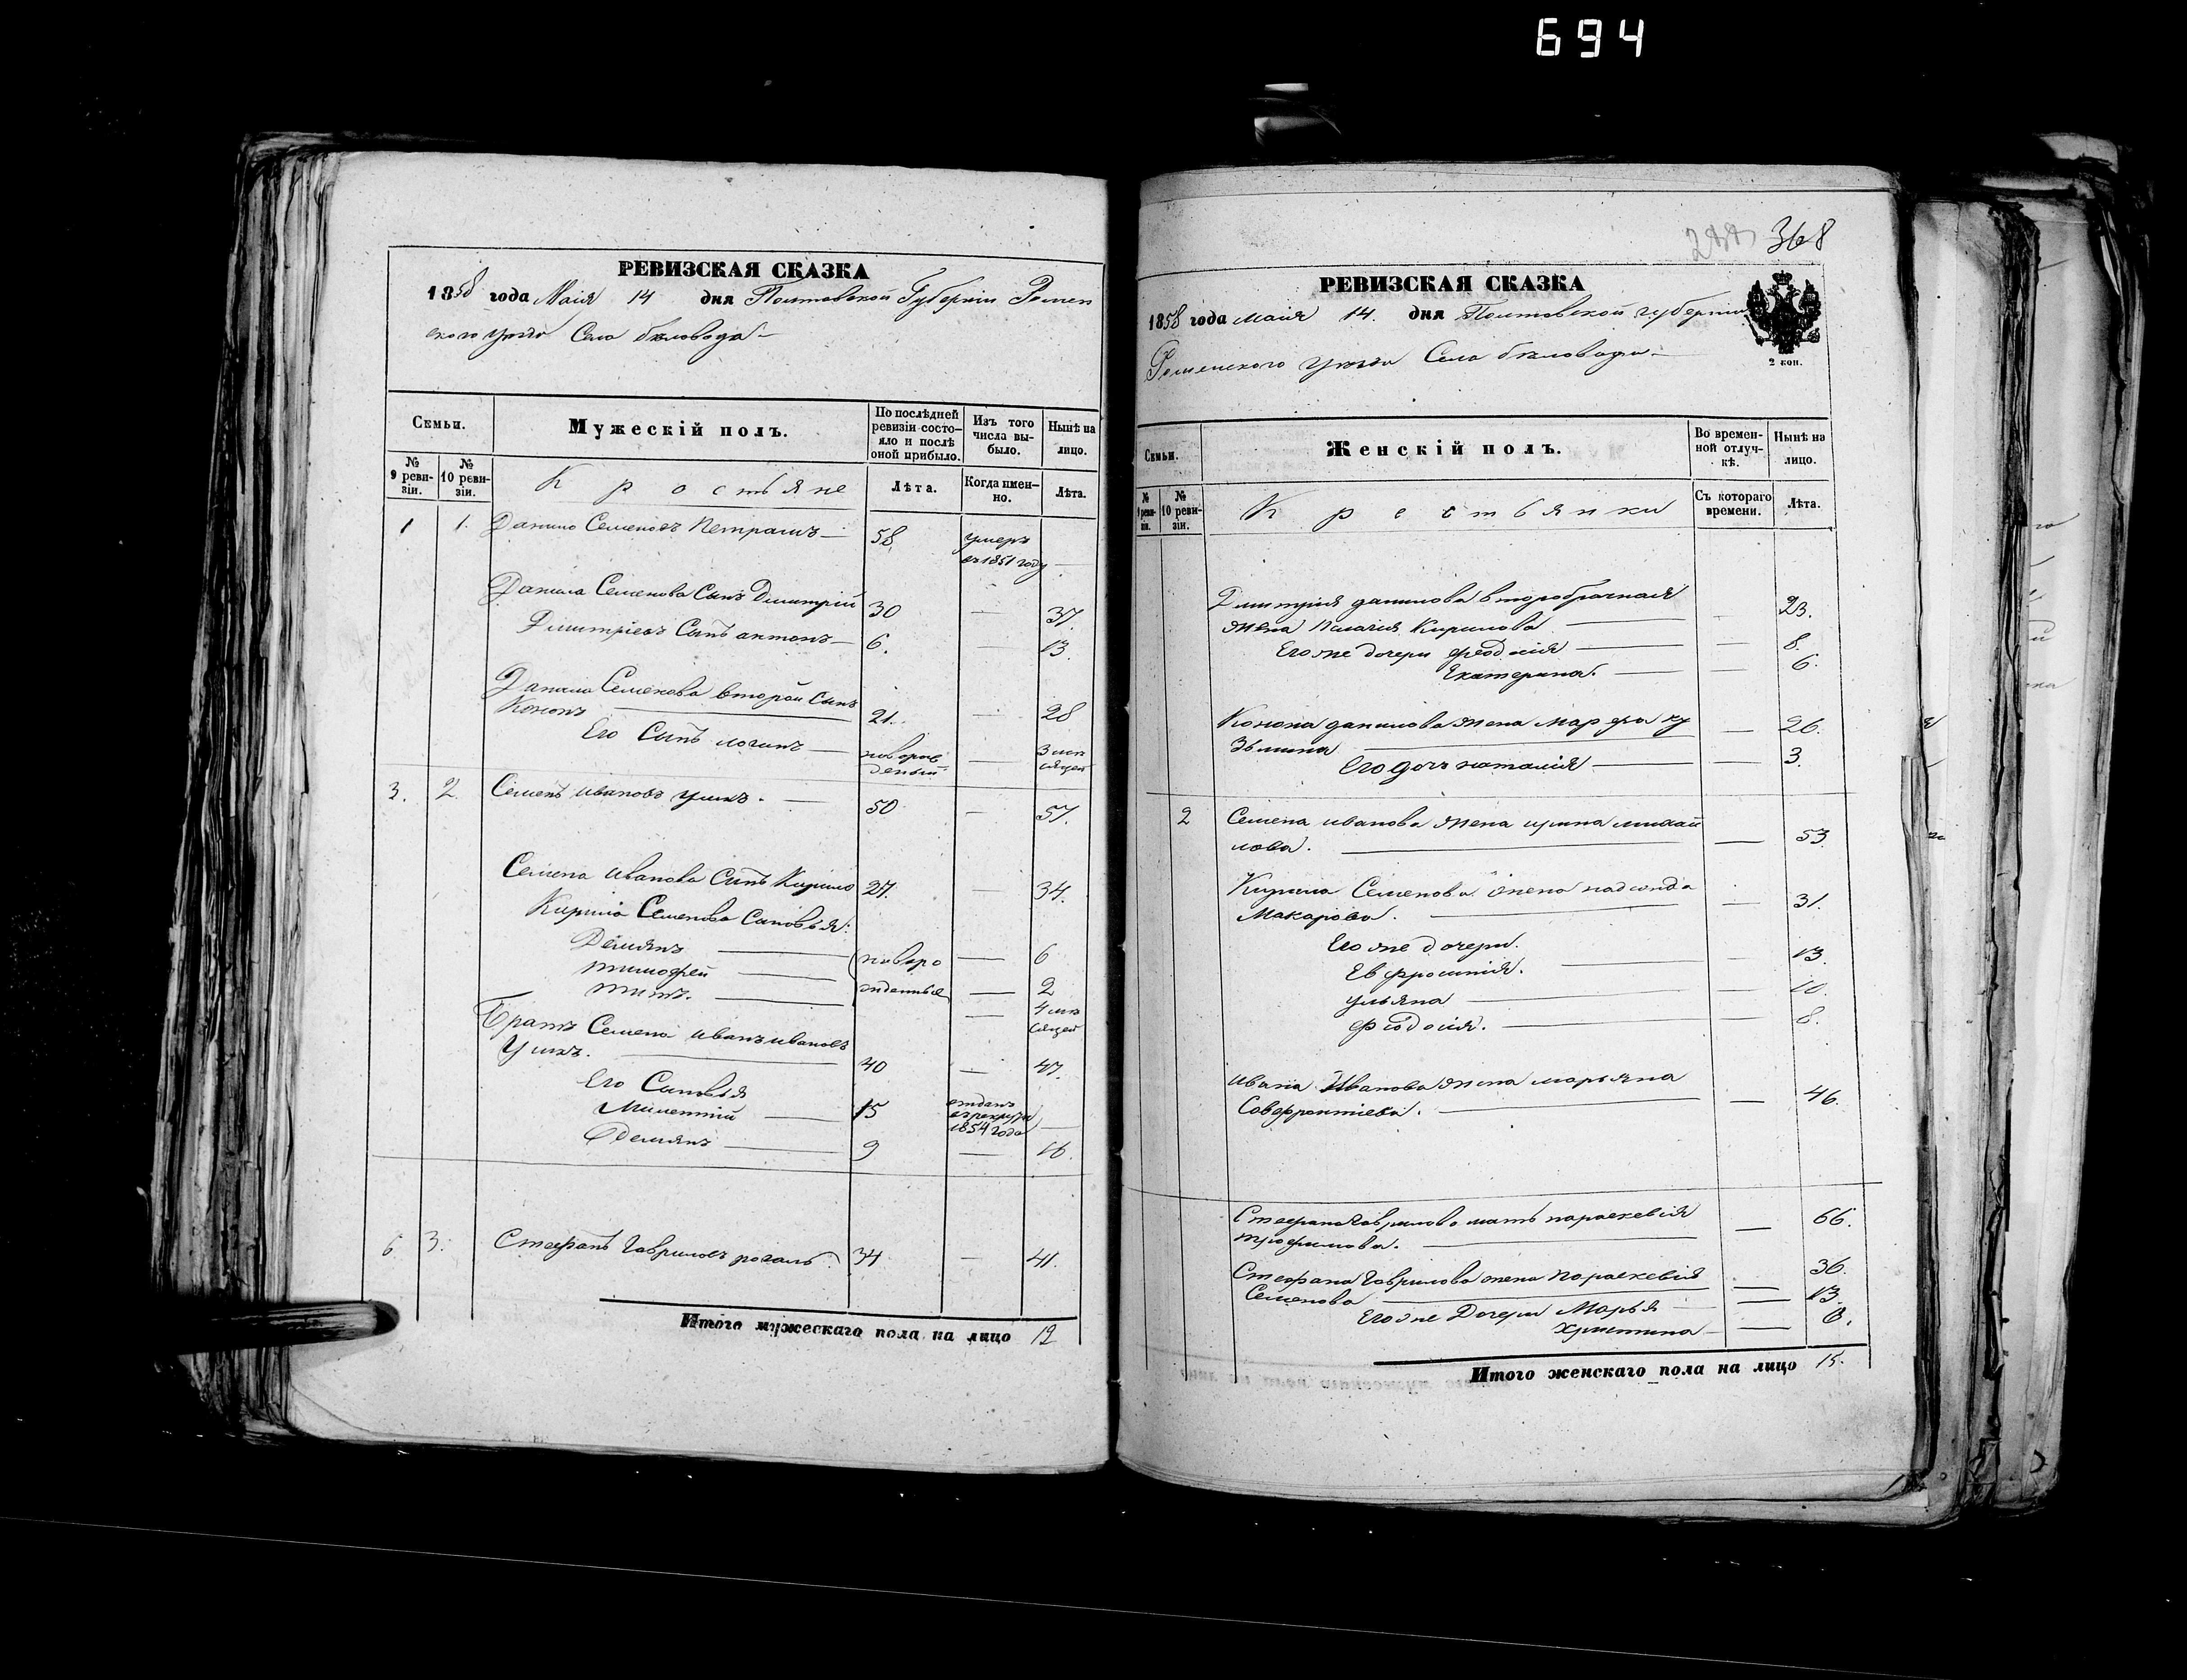 694
РЕВИЗСКАЯ СКАЗКА
1858 года Маія 14 дня Полтавской Губерніи Ромен
ского уѣзда Села бѣловода
Семьи.
Мужескій полъ.
По послѣдней ревизіи состояло и послѣ оной прибыло.
Изъ того числа выбыло.
Нынѣ на лицо.
№ 9 ревизіи.
№ 10 ревизіи.
Крестьяне
Лѣта.
Когда именно.
Лѣта.
1 1. Данило Семеновъ Петрашъ 58 умеръ
въ 1851 году
Данила Семенова Сынъ Димитрій 30 37.
Дмитріевъ Сынъ антонъ 6. 13.
Данила Семенова второй Сынъ
Кононъ 21. 28
Его Сынъ логинъ новорож 3 мѣ
деный сяцей
3. 2 Семенъ ивановъ 50 57.
Семена иванова Сынъ Кирило 27. 34.
Кирила Семенова Сыновья:
Демянъ новоро 6
тимофей жденные 2
титъ. 4 мѣ
сяцей
Братъ Семена иванъ ивановъ
40 47.
Его Сыновья
Милентій 15 отданъ
въ рекруты
1854 года
Демянъ 9 16.
6 3. Стефанъ Гавриловъ рогаль 34 41.
Итого мужескаго пола на лицо 12
368
РЕВИЗСКАЯ СКАЗКА
1858 года маія 14. дня Полтавской губерніи
Роменского уѣзда Села бѣловода
2 коп.
Семьи.
Женскій полъ.
Во временной отлучкѣ.
Нынѣ на лицо.
№ 9 ревизіи.
№ 10 ревизіи.
Крестьянки
Съ котораго времени.
Лѣта.
Дмитрія данилова второбрачная
жена Палагія Кирилова 23.
Его же дочери феодосія 8.
Екатерина. 6.
Конона данилова жена марфа ку
зьмина 26.
Его дочь наталія 3.
2 Семена иванова жена ирина михай
лова. 53
Кирила Семенова жена
Макарова. 31.
Его же дочери.
Евфросинія. 13.
ульяна 10.
феодосія. 8.
ивана Иванова жена марьяна
46.
Стефана Гаврилова мать параскевія
трофимова. 66.
Стефана Гаврилова жена Параскевія 36.
Семенова
Его же Дочери Марья 13.
Христина 8.
Итого женскаго пола на лицо 15.